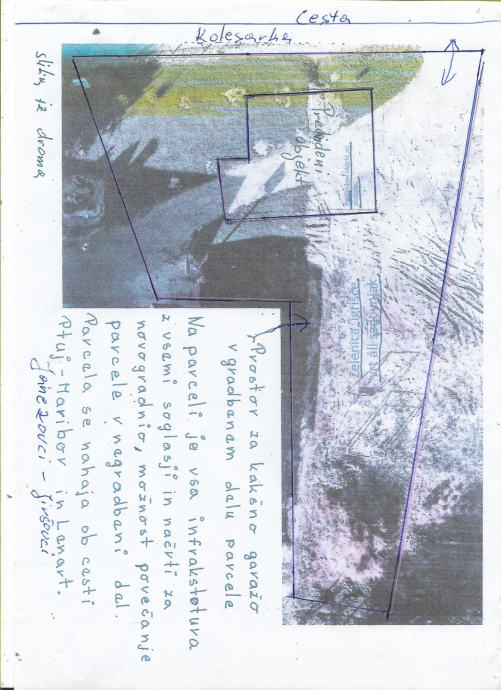 Cesta
Kolesarka
slika iz droma
Predvideni
objekt
zelenica, igrišče
Prostor za kakšno garažo
v gradbenem delu parcele
Na parceli je vsa infrakstotura
z vsemi soglasji in načrti za
novogradnjo, možnost povečanje
parcele v negradbeni del.
Parcela se nahaja ob cesti
Ptuj - Maribor in Lenart.
Janežovci - Jiršovci